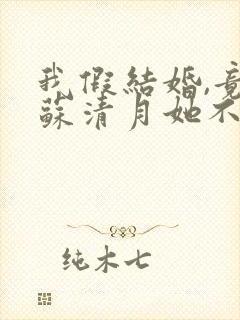 我假結婚,竟
蘇清月她不
纯木七